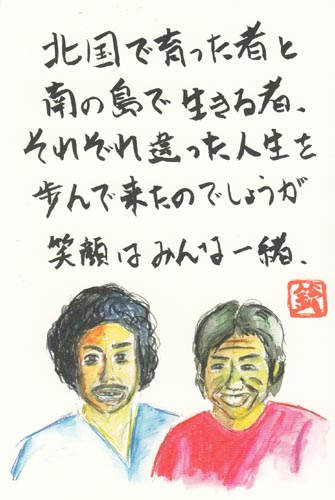 北国で育った者と
南の島で生きる者、
それぞれ違った人生を
歩んで来たのでしょうが
笑顔はみんな一緒、